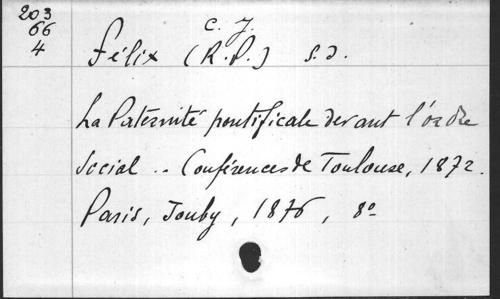 203
66
4
C. J.
Félix (R. P.) S. J.
La Paternité pontificale devant l'ordre
social .. Conférences de Toulouse, 1872.
Paris, Jouby, 1876, 8°